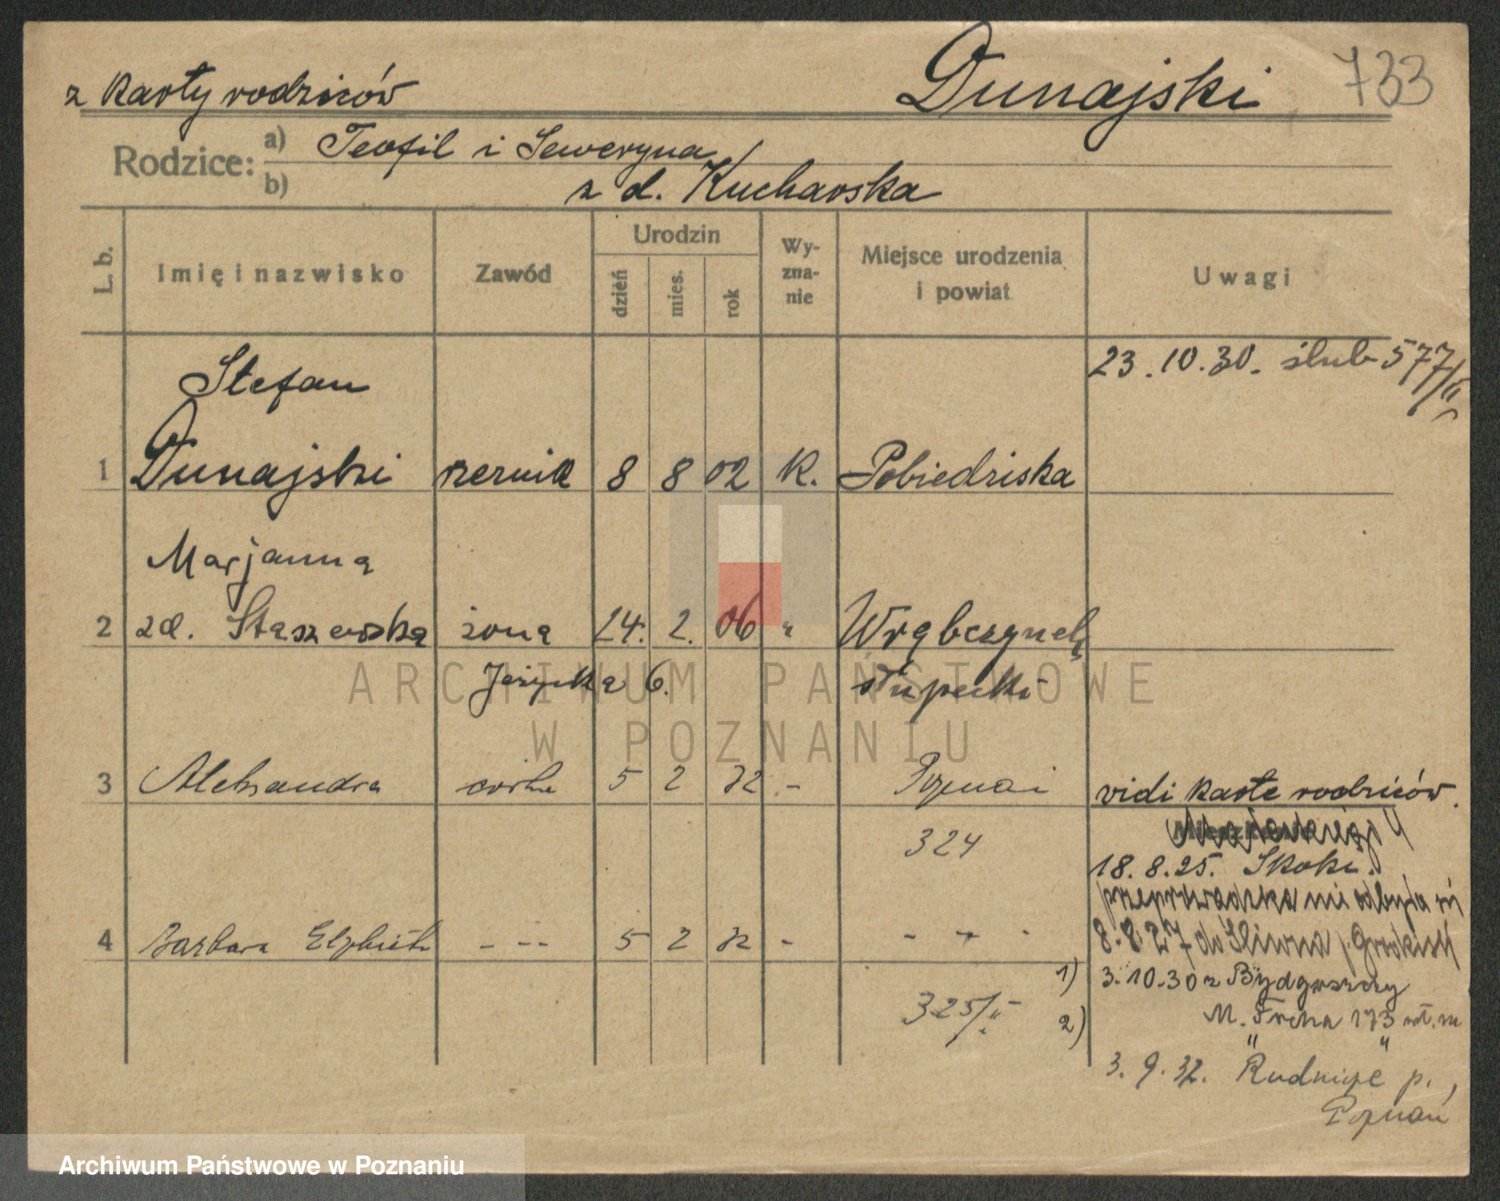 z karty rodziców
Dunajski 733
Rodzice: a) Teofil i Seweryna
b) z d. Kucharska
L. b. Imię i nazwisko Zawód Urodzin dzień mies. rok Wy-zna-nie Miejsce urodzenia i powiat Uwagi
23.10.30. ślub 577/II
Stefan
1 Dunajski rzeźnik 8 8 02 K. Pobiedziska
Marjanna
2 zd. Staszewska żona 24. 2. 06 " Wrąbczynek
Jeżycka 6. słupecki
3 Aleksandra córka 5 2 32 - Poznań vidi kartę rodziców.
324
18.8.25. Skoki.
przeprowadzka nie odbyła się
4 Barbara Elżbieta - -- 5 2 32 - - - - 8.8.27 do Śliwna p. Grodzisk
1) 3.10.30 z Bydgoszczy
325/II 2) M. Focha 173
3.9.32. " Rudnicze " p.
Poznań
ARCHIWUM PAŃSTWOWE
W POZNANIU
Archiwum Państwowe w Poznaniu